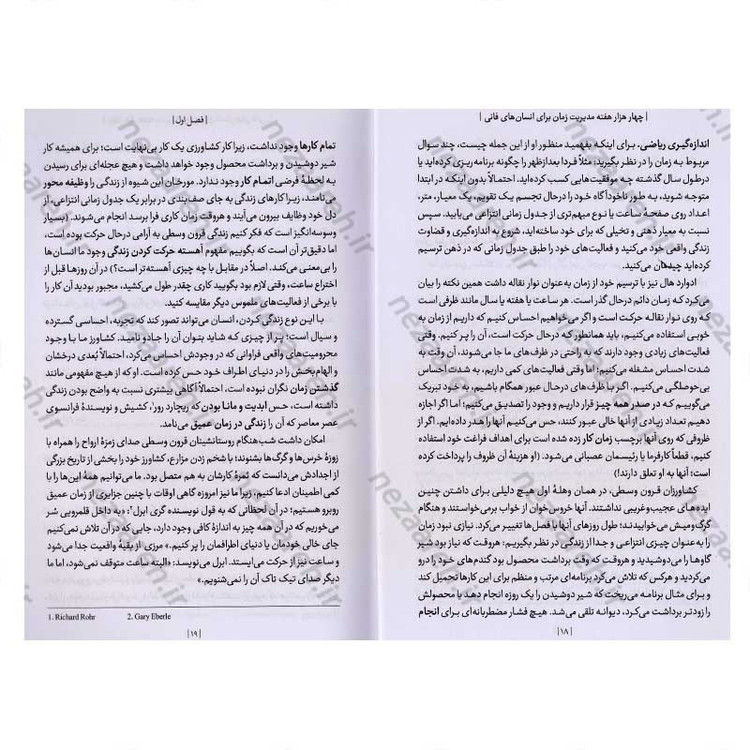 | چهار هزار هفته مدیریت زمان برای انسان‌های فانی |
اندازه‌گیری ریاضی. برای اینکه بفهمید منظور او از این جمله چیست، چند سوال
مربوط به زمان را در نظر بگیرید: مثلاً فردا بعدازظهر را چگونه برنامه‌ریزی کرده‌اید یا
درطول سال گذشته چه موفقیت‌هایی کسب کرده‌اید. احتمالاً بدون اینکه در ابتدا
متوجه شوید، به طور ناخودآگاه خود را درحال تجسم یک تقویم، یک معیار، متر،
اعداد روی صفحهٔ ساعت یا نوع مبهم‌تری از جدول زمانی انتزاعی می‌یابید. سپس
نسبت به معیار ذهنی و تخیلی که برای خود ساخته‌اید، شروع به اندازه‌گیری و قضاوت
زندگی واقعی خود می‌کنید و فعالیت‌های خود را طبق جدول زمانی که در ذهن ترسیم
کرده‌اید چیدمان می‌کنید.
ادوارد هال نیز با ترسیم خود از زمان به‌عنوان نوار نقاله داشت همین نکته را بیان
می‌کرد که زمان دائم درحال گذر است. هر ساعت یا هفته یا سال مانند ظرفی است
که روی نوار نقاله حرکت است و اگر می‌خواهیم احساس کنیم که داریم از زمان به
خوبی استفاده می‌کنیم، باید همانطور که درحال حرکت است، آن را پر کنیم. وقتی
فعالیت‌های زیادی وجود دارند که به راحتی در ظرف‌های ما جا می‌شوند، آن وقت به
احساس مشغله می‌کنیم؛ اما وقتی فعالیت‌های کمی داریم، به شدت احساس
بی‌حوصلگی می‌کنیم. اگر با ظرف‌های درحال عبور همگام باشیم، به خود تبریک
می‌گوییم که در صدر همه چیز قرار داریم و وجود را تصدیق می‌کنیم؛ اما اگر اجازه
دهیم تعداد زیادی از آنها خالی عبور کنند، حس می‌کنیم آنها را هدر داده‌ایم. اگر از
ظروفی که روی آنها برچسب زمان کار زده شده است برای اهداف فراغت خود استفاده
کنیم، قطعاً کارفرما یا رئیسمان عصبانی می‌شود. (او هزینهٔ آن ظروف را پرداخت کرده
است؛ آنها به او تعلق دارند!)
کشاورزان قرون وسطی، در همان وهلهٔ اول هیچ دلیلی برای داشتن چنین
ایده‌های عجیب‌وغریبی نداشتند. آنها خروس‌خوان از خواب برمی‌خواستند و هنگام
گرگ‌ومیش می‌خوابیدند؛ طول روزهای آنها با فصل‌ها تغییر می‌کرد. نیازی نبود زمان
را به‌عنوان چیزی انتزاعی و جدا از زندگی در نظر بگیریم: هروقت که نیاز بود شیر
گاوها را می‌دوشیدند و هروقت که وقت برداشت محصول بود گندم‌های خود را درو
می‌کردند و هرکس که تلاش می‌کرد برنامه‌ای مرتب و منظم برای این کارها تحمیل کند
و برای مثال برنامه می‌ریخت که شیر دوشیدن را یک روزه انجام دهد یا محصولش
را زودتر برداشت می‌کرد، دیوانه تلقی می‌شد. هیچ فشار مضطربانه‌ای برای انجام
| ۱۸ |
| فصل اول |
تمام کارها وجود نداشت، زیرا کار کشاورزی یک کار بی‌نهایت است: برای همیشه کار
شیر دوشیدن و برداشت محصول وجود خواهد داشت و هیچ عجله‌ای برای رسیدن
به لحظهٔ فرضی اتمام کار وجود ندارد. مورخان این شیوه از زندگی را وظیفه محور
می‌نامند، زیرا کارهای زندگی به جای صف‌بندی در برابر یک جدول زمانی انتزاعی، از
دل خود وظایف بیرون می‌آیند و هروقت زمان کاری فرا برسد انجام می‌شوند. (بسیار
وسوسه‌انگیز است که فکر کنیم زندگی قرون وسطی به آرامی درحال حرکت بوده است،
اما دقیق‌تر آن است که بگوییم مفهوم آهسته حرکت کردن زندگی وجود ما انسان‌ها
را بی‌معنی می‌کند. اصلاً در مقابل با چه چیزی آهسته‌تر است؟) در آن روزها قبل از
اختراع ساعت، وقتی لازم بود بگویید کاری چقدر طول می‌کشید، مجبور بودید آن کار را
با برخی از فعالیت‌های ملموس دیگر مقایسه کنید.
با این نوع زندگی کردن، انسان می‌تواند تصور کند که تجربه، احساسی گسترده
و سیال است: پر از چیزی که شاید بتوان آن را جادو نامید. کشاورز ما با وجود
محرومیت‌های واقعی فراوانی که در وجودش احساس می‌کرد، احتمالاً بُعدی درخشان
و الهام‌بخش را در دنیای اطراف خود حس کرده است. او که از هیچ مفهومی مانند
گذشتن زمان نگران نبوده است، احتمالاً آگاهی بیشتری نسبت به واضح بودن زندگی
داشته است، حس ابدیت و مانا بودن که ریچارد رور¹، کشیش و نویسندهٔ فرانسوی
عصر معاصر که آن را زندگی در زمان عمیق می‌نامد.
امکان داشت شب‌هنگام روستانشینان قرون وسطی صدای زمزهٔ ارواح را همراه با
زوزهٔ خرس‌ها و گرگ‌ها بشنوند؛ با شخم زدن مزارع، کشاورز خود را بخشی از تاریخ بزرگی
از اجدادش می‌دانست که ثمرهٔ کارشان به هم متصل بود. ما می‌توانیم همهٔ این‌ها را با
کمی اطمینان ادعا کنیم، زیرا ما نیز امروزه گاهی اوقات با چنین جزایری از زمان عمیق
روبرو هستیم: در آن لحظاتی که به قول نویسنده گری ابرل²: «به داخل قلمرویی سر
می‌خوریم که در آن همه چیز به اندازهٔ کافی وجود دارد، جایی که در آن تلاش نمی‌کنیم
جای خالی خودمان یا دنیای اطرافمان را پر کنیم.» مرزی از بقیهٔ واقعیت جدا می‌شود
و ساعت نیز از حرکت می‌ایستد. ابرل می‌نویسد: «البته ساعت متوقف نمی‌شود، اما ما
دیگر صدای تیک تاک آن را نمی‌شنویم.»
1. Richard Rohr 2. Gary Eberle
| ۱۹ |